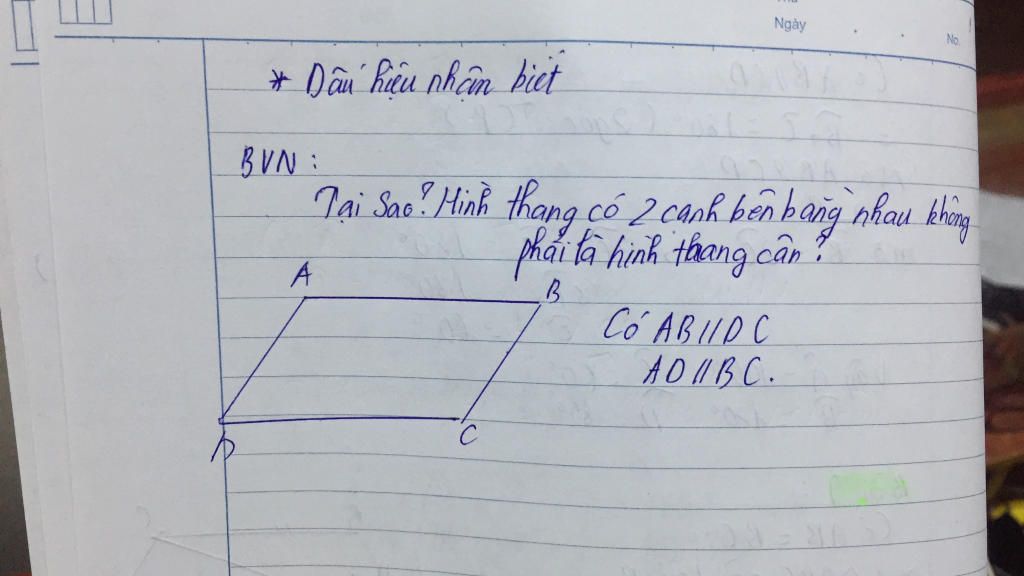 Ngày
No.
* Dấu hiệu nhận biết
BVN :
Tại sao? Hình thang có 2 cạnh bên bằng nhau không
phải là hình thang cân ?
A
B
Có AB // DC
AD // BC.
D
C